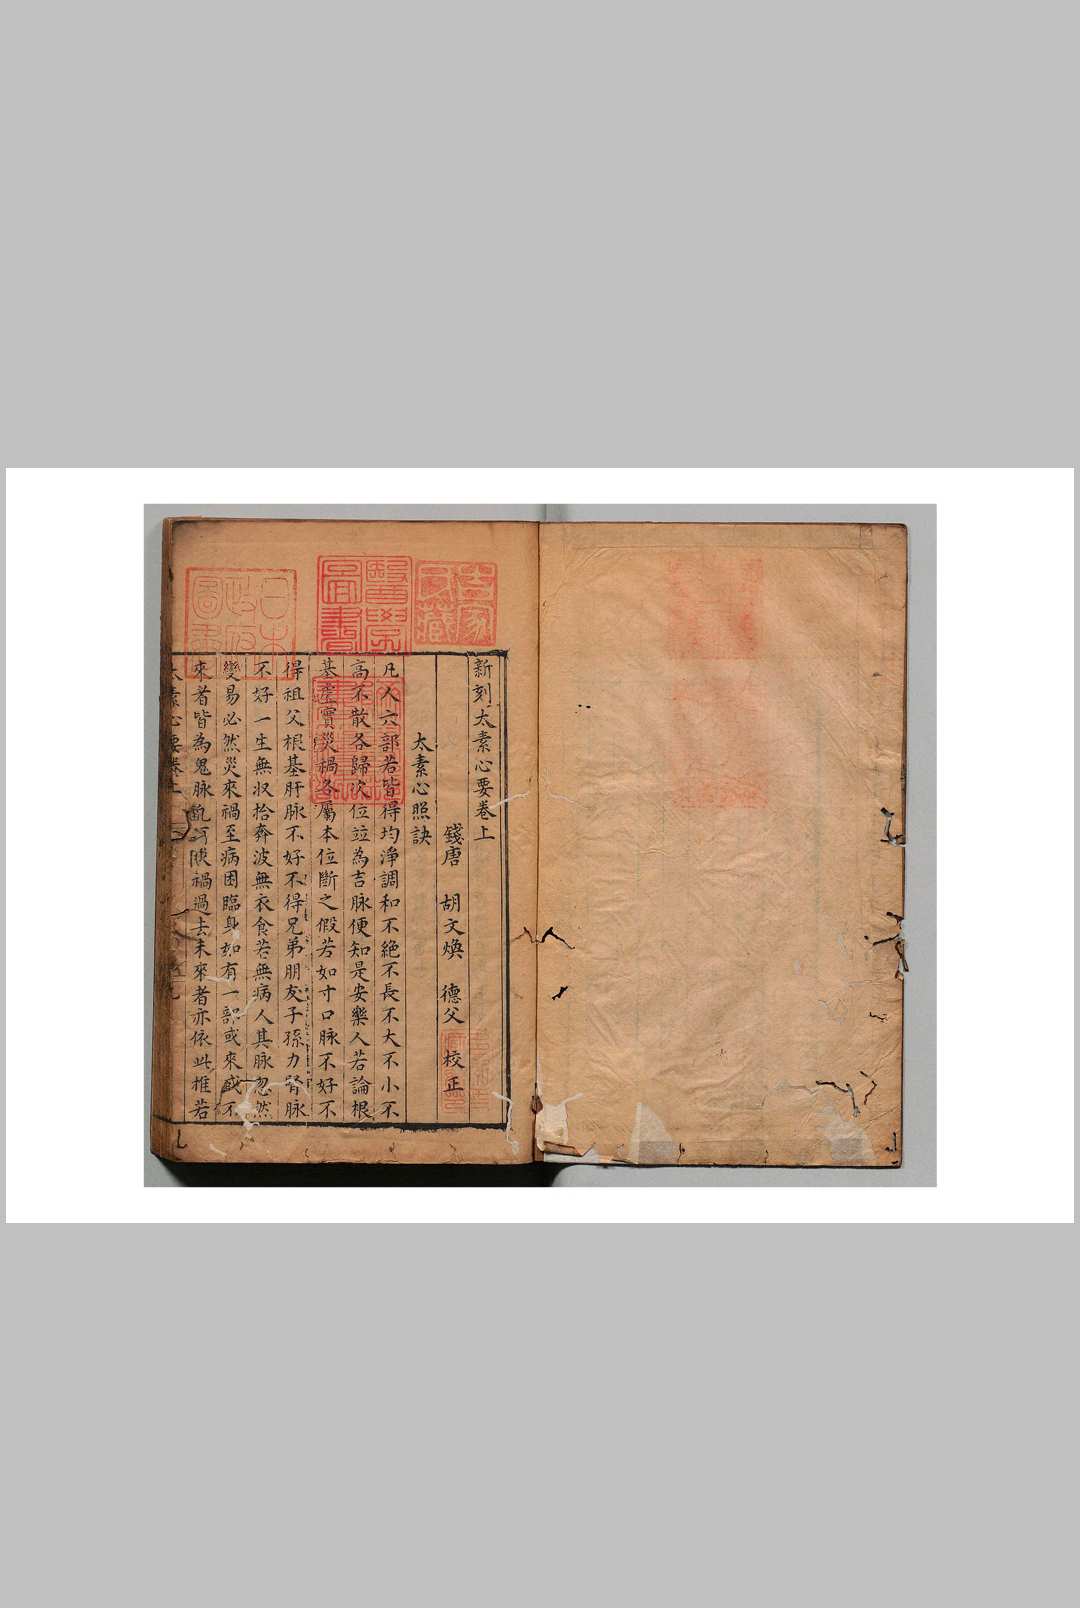 新刻太素心要卷上
錢唐 胡文煥 德父 校正
太素心照訣
凡人六部若皆得均淨調和不絕不長不大不小不
高不散各歸次位竝為吉脉便知是安樂人若論根
基虛實災禍各屬本位斷之假若如寸口脉不好不
得祖父根基肝脉不好不得兄弟朋友子孫力腎脉
不好一生無収拾奔波無衣食若無病人其脉忽然
變易必然災來禍至病困臨身如有一部或來或不
來者皆為鬼脉禍過去未來者亦依此推若
太素心要卷上
日本政府圖書
醫學圖書
吉家氏藏